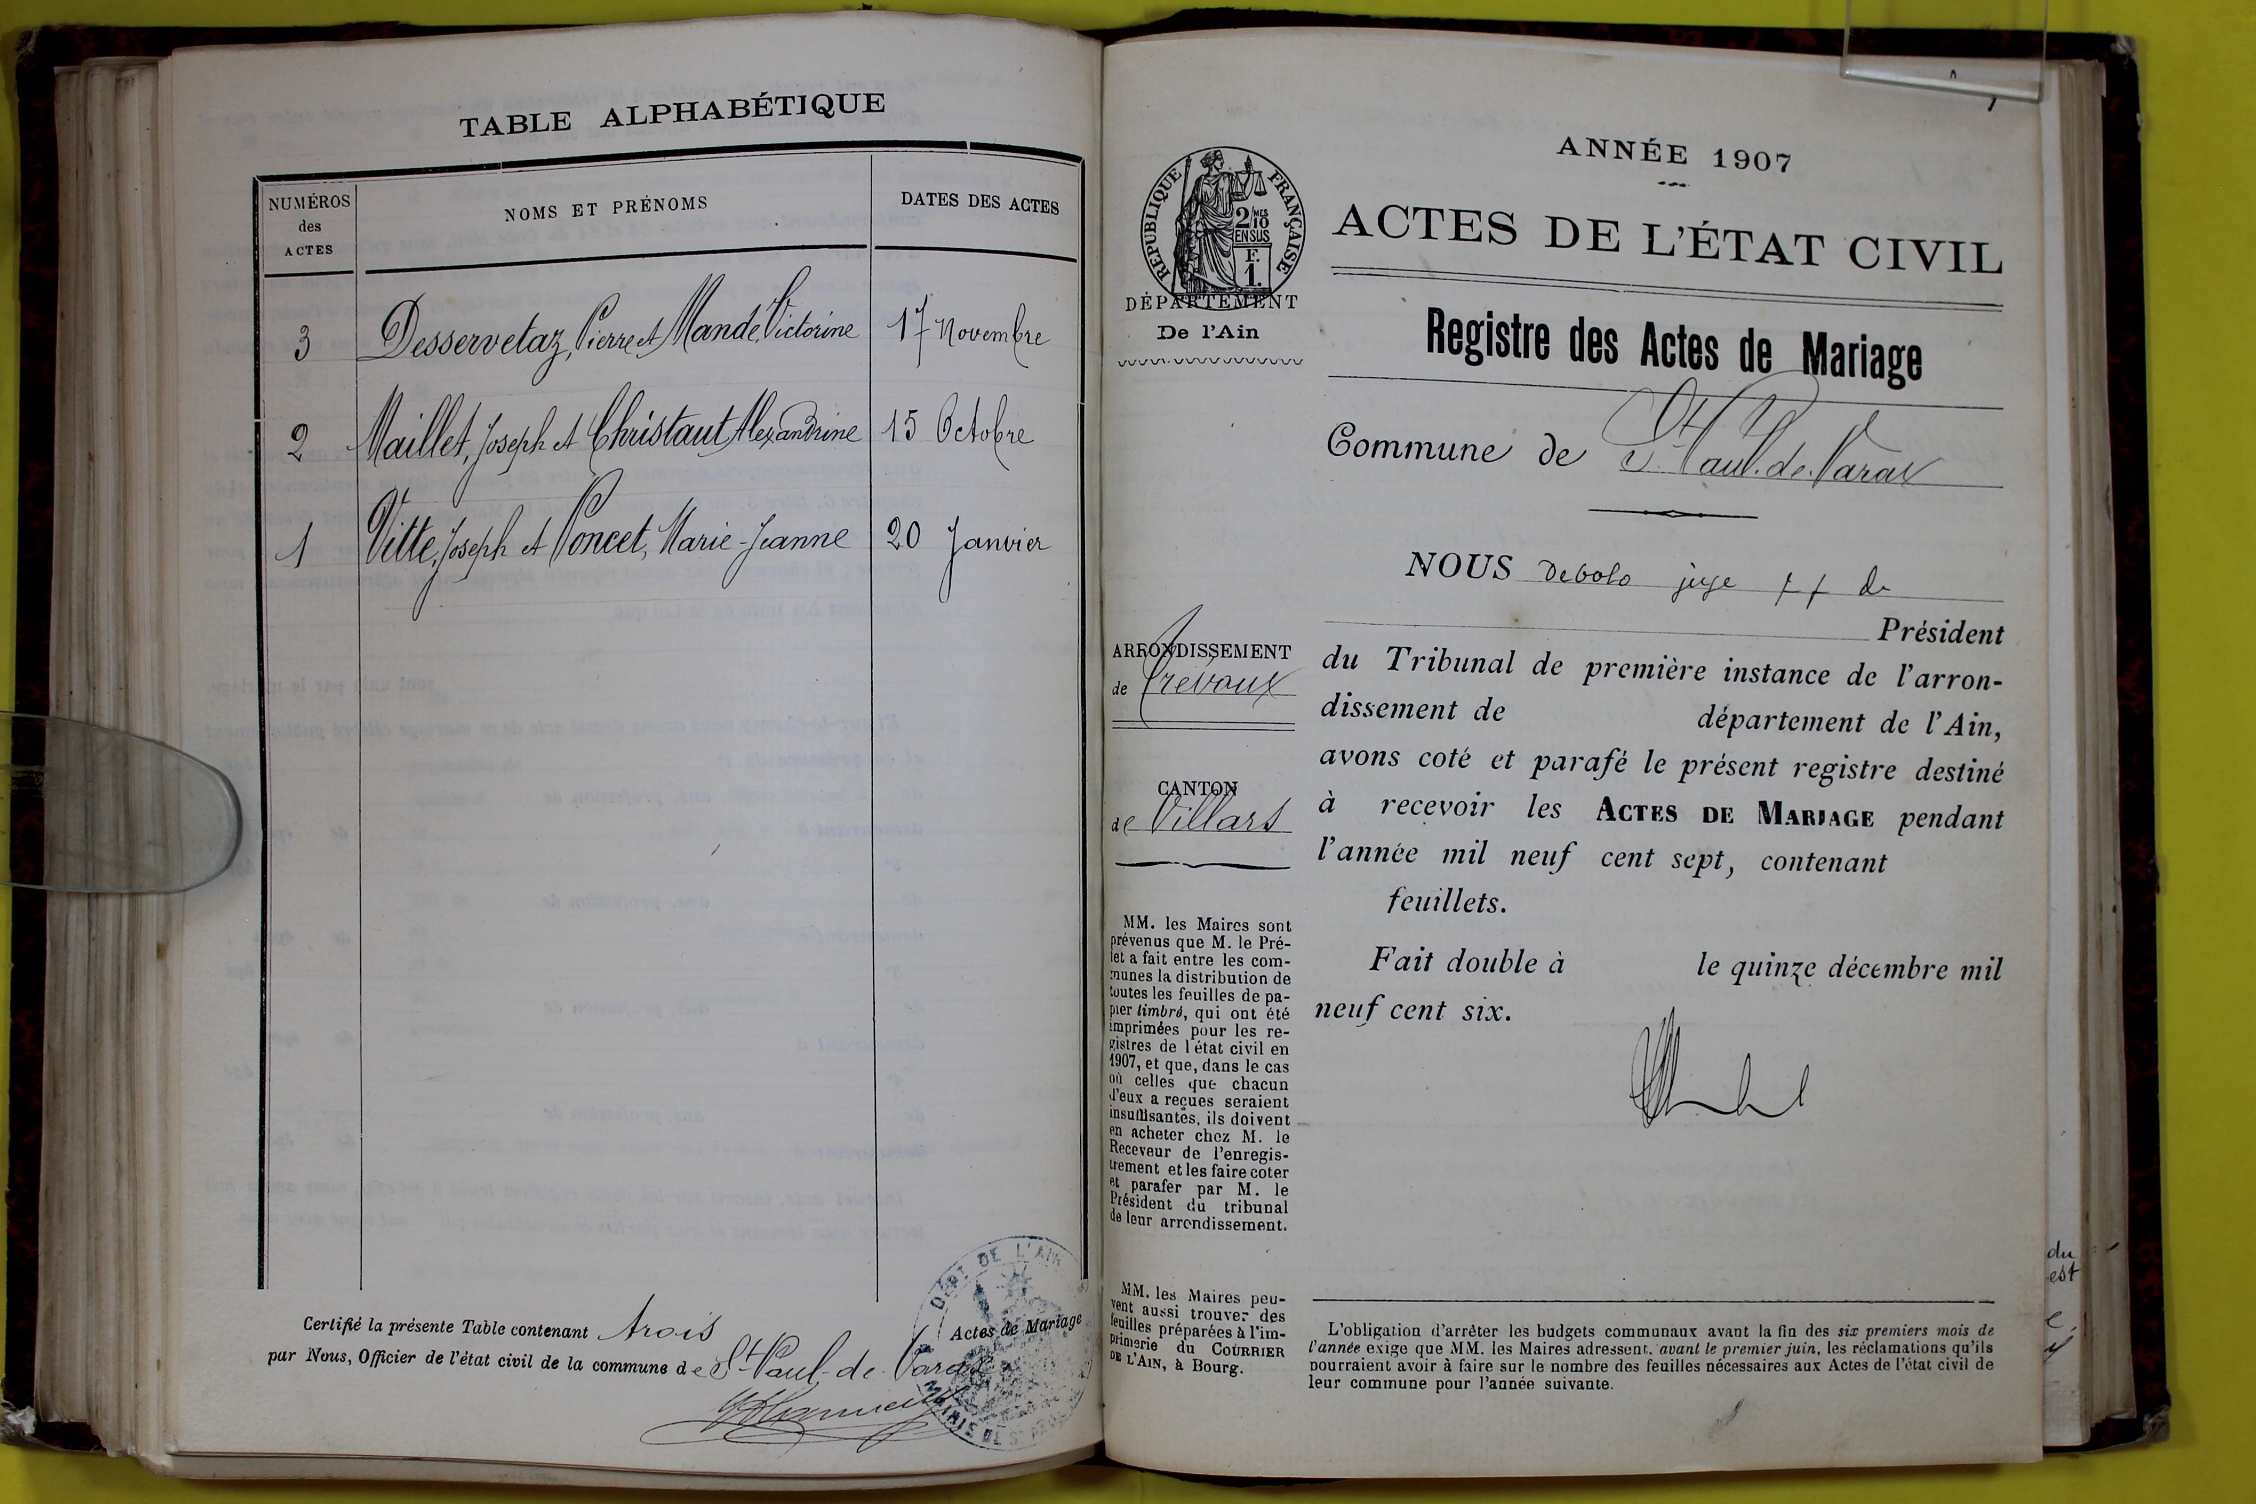 TABLE ALPHABÉTIQUE
NUMÉROS
des
ACTES
NOMS ET PRÉNOMS
DATES DES ACTES
3 Desservetaz, Pierre et Mande, Victorine 17 Novembre
2 Maillet, Joseph et Christaut, Alexandrine 15 Octobre
1 Vitte, Joseph et Poncet, Marie-Jeanne 20 Janvier
Certifié la présente Table contenant trois Actes de Mariage
par Nous, Officier de l'état civil de la commune de St Paul-de Varax
DEPT DE L'AIN
MAIRIE DE ST PAUL
RÉPUBLIQUE FRANÇAISE
2/10 MES
EN SUS
F.
1.
DÉPARTEMENT
De l'Ain
ARRONDISSEMENT
de Trévoux
CANTON
de Villars
MM. les Maires sont
prévenus que M. le Pré-
fet a fait entre les com-
munes la distribution de
toutes les feuilles de pa-
pier timbré, qui ont été
imprimées pour les re-
gistres de l'état civil en
1907, et que, dans le cas
où celles que chacun
d'eux a reçues seraient
insuffisantes, ils doivent
en acheter chez M. le
Receveur de l'enregis-
trement et les faire coter
et parafer par M. le
Président du tribunal
de leur arrondissement.
MM. les Maires peu-
vent aussi trouver des
feuilles préparées à l'im-
primerie du COURRIER
DE L'AIN, à Bourg.
ANNÉE 1907
ACTES DE L'ÉTAT CIVIL
Registre des Actes de Mariage
Commune de St Paul.de.Varax
NOUS Debolo juge ff de
Président
du Tribunal de première instance de l'arron-
dissement de département de l'Ain,
avons coté et parafé le présent registre destiné
à recevoir les ACTES DE MARIAGE pendant
l'année mil neuf cent sept, contenant
feuillets.
Fait double à le quinze décembre mil
neuf cent six.
L'obligation d'arrêter les budgets communaux avant la fin des six premiers mois de
l'année exige que MM. les Maires adressent, avant le premier juin, les réclamations qu'ils
pourraient avoir à faire sur le nombre des feuilles nécessaires aux Actes de l'état civil de
leur commune pour l'année suivante.
du
est